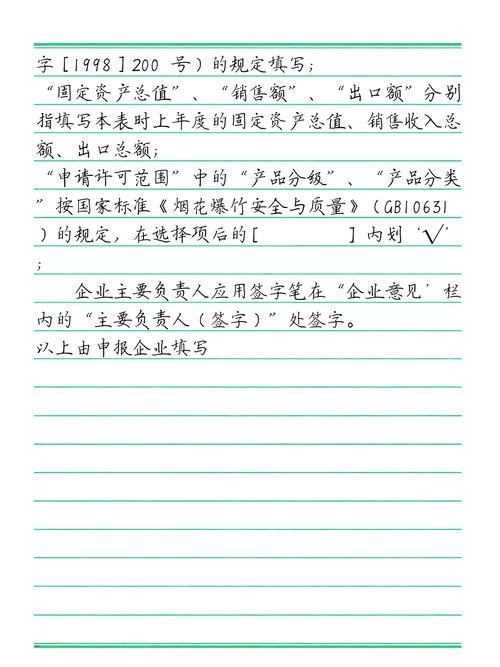 字[1998]200 号)的规定填写;
“固定资产总值”、“销售额”、“出口额”分别
指填写本表时上年度的固定资产总值、销售收入总
额、出口总额;
“申请许可范围”中的“产品分级”、“产品分类
”按国家标准《烟花爆竹安全与质量》(GB10631
)的规定,在选择项后的[ ]内划‘√’
;
企业主要负责人应用签字笔在“企业意见’栏
内的“主要负责人(签字)”处签字。
以上由申报企业填写